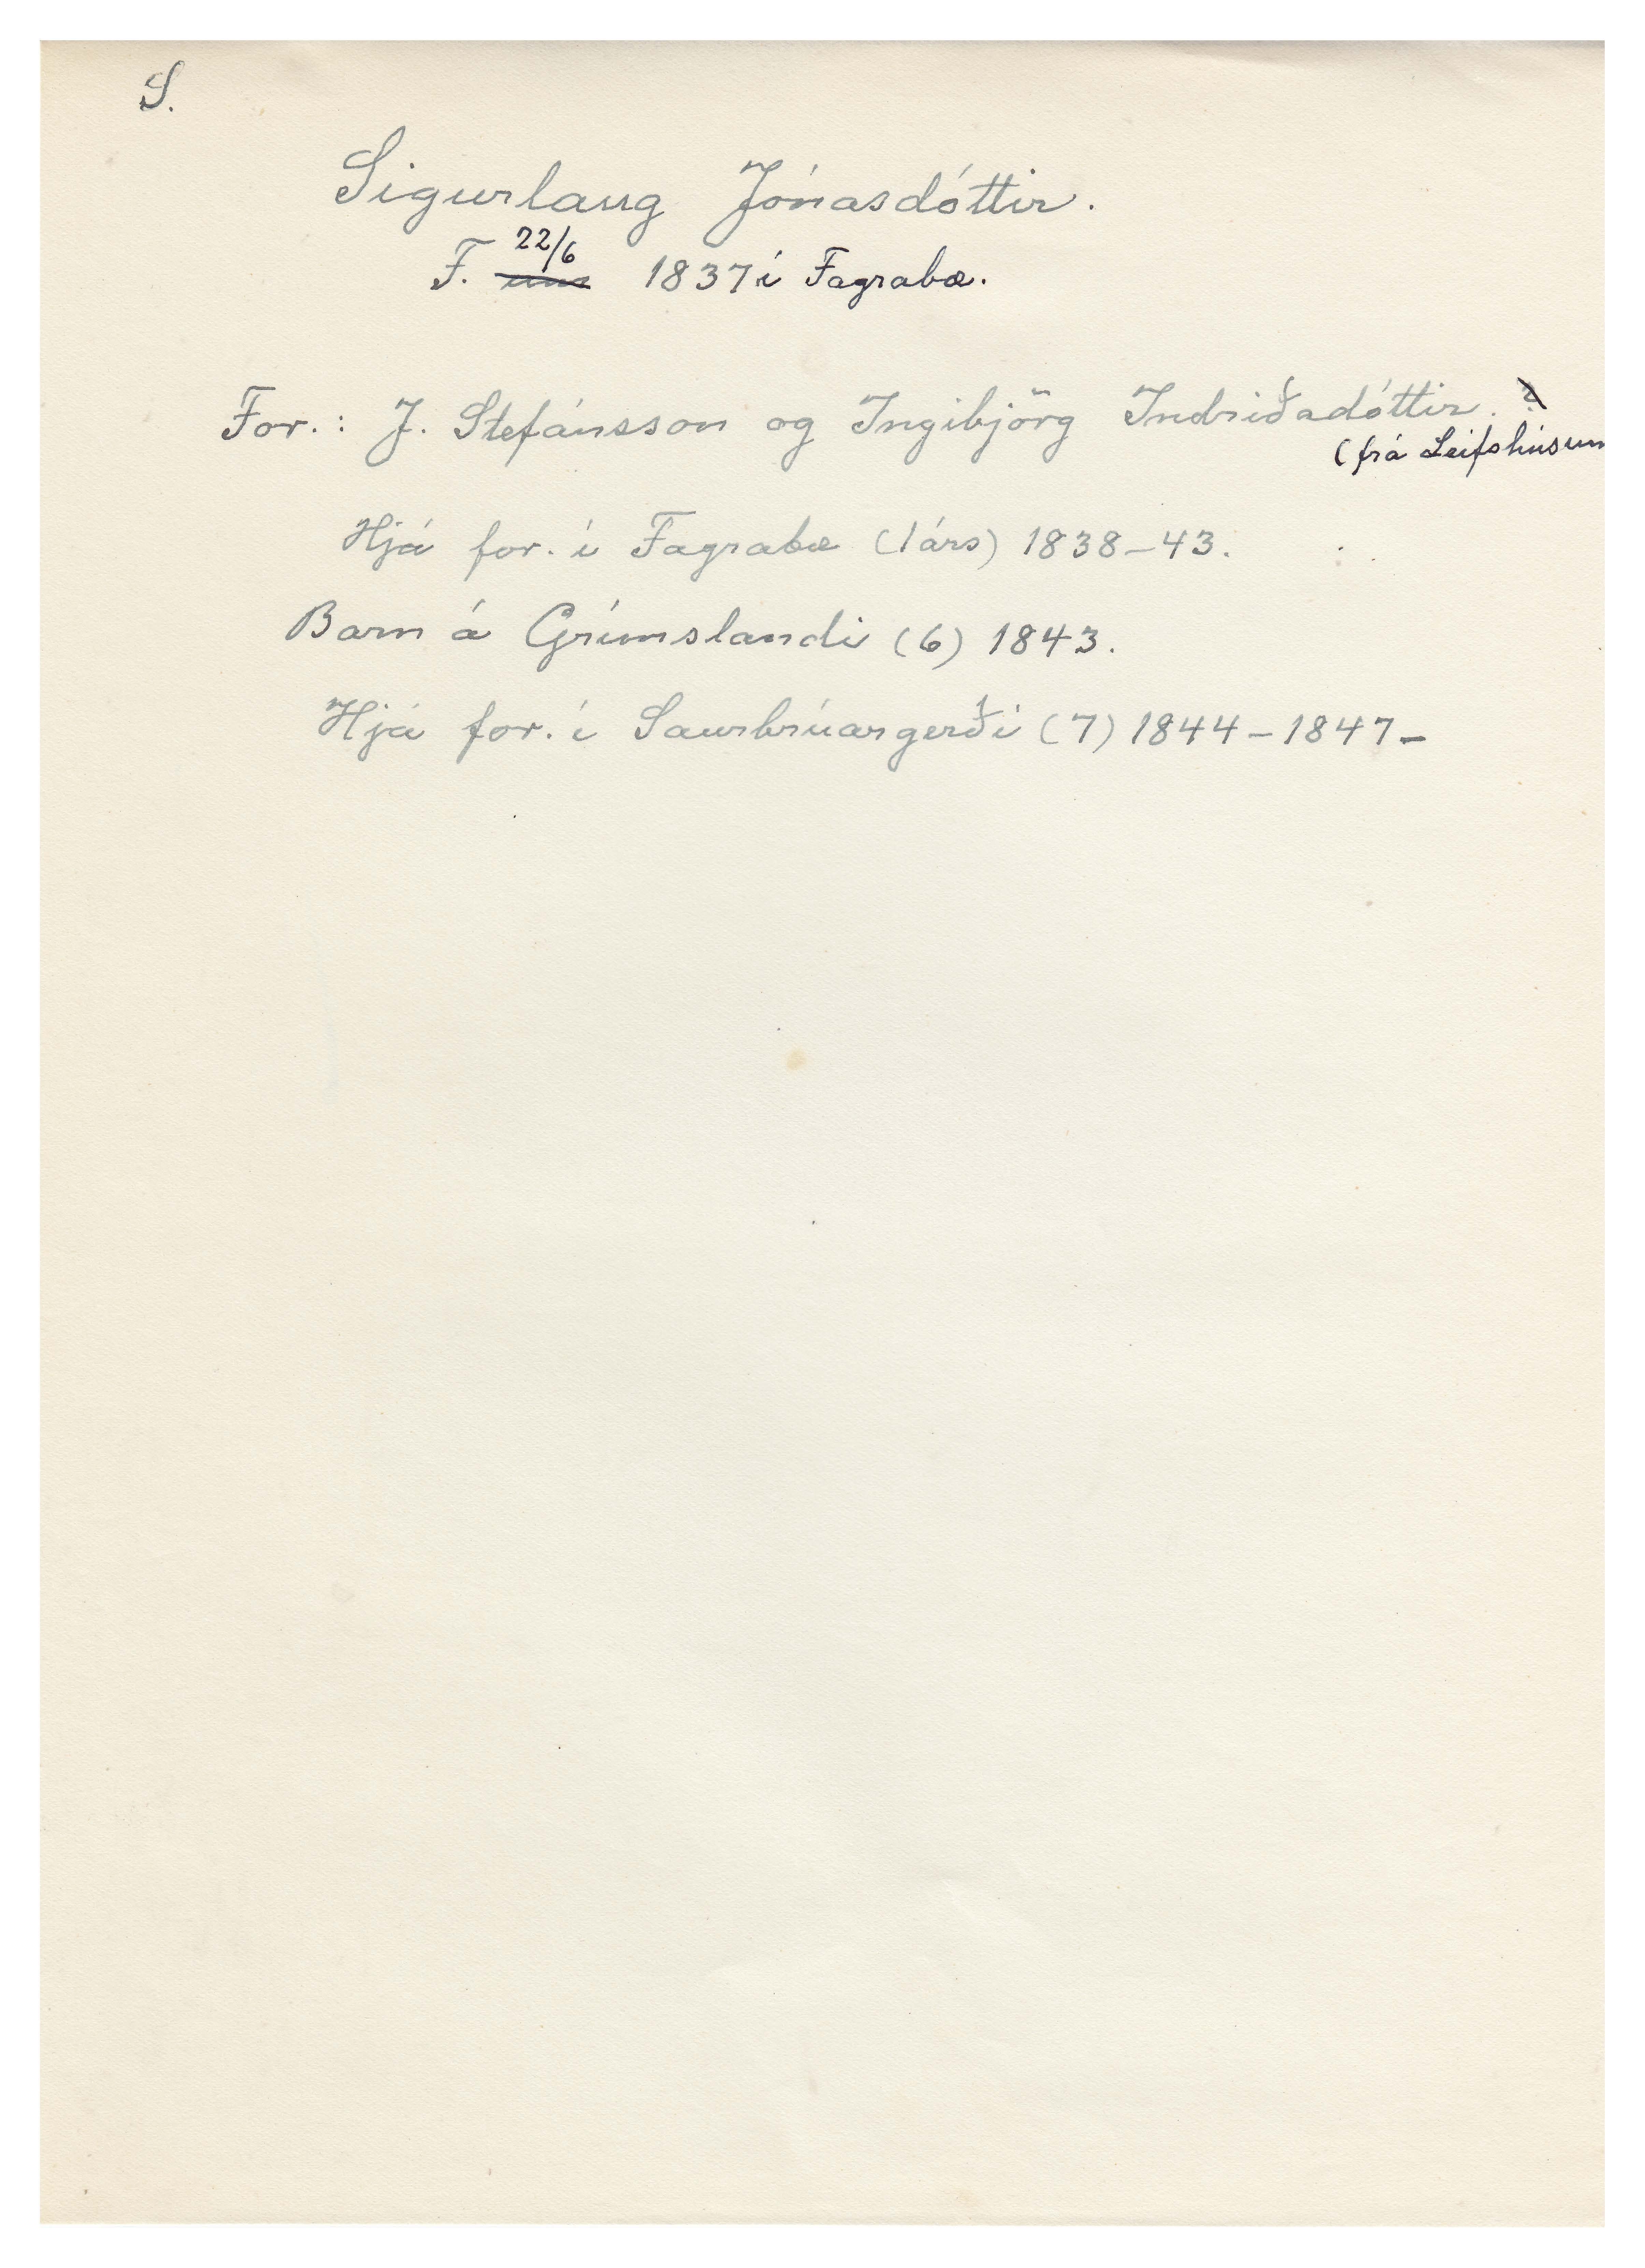 S.
Sigurlaug Jónasdóttir.
F. 22/6 1837 í Fagrabæ.
For.: J. Stefánsson og Ingibjörg Indriðadóttir.
(frá Leifshúsum
Hjá for. í Fagrabæ (1árs) 1838-43.
Barn á Grímslandi (6) 1843.
Hjá for. í Saurbrúargerði (7) 1844-1847-